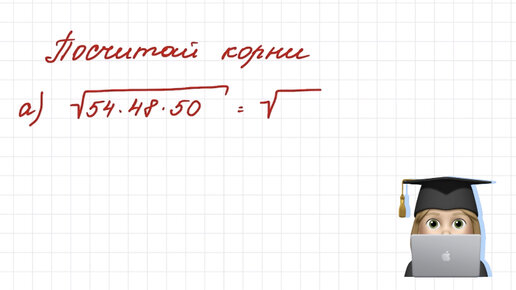 Посчитай корни
а) √54·48·50 = √